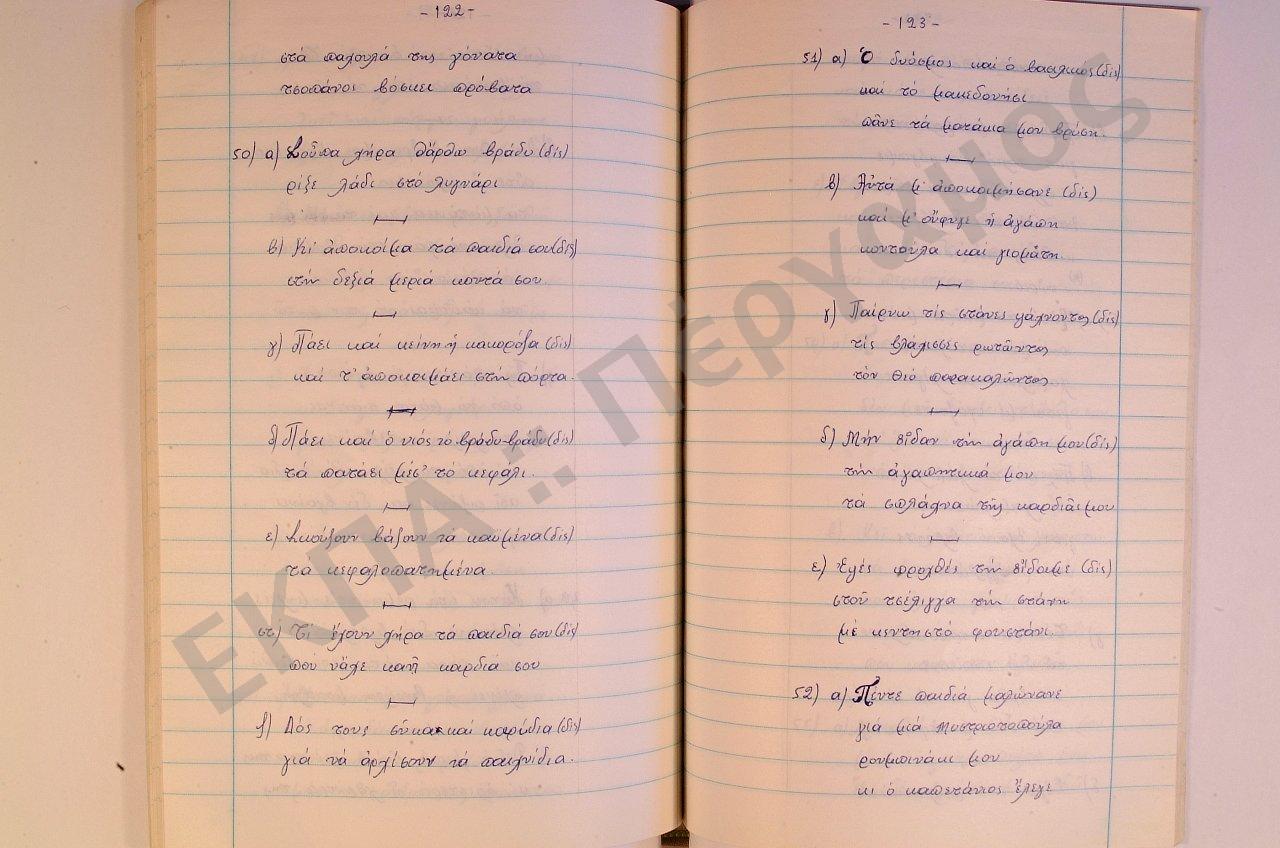 - 122 -
στά παχουλά της γόνατα
τσοπάνοι βόσκει πρόβατα
50) α) Σοὖπα χήρα θἄρθω βράδυ (δίς)
ρίξε λάδι στό λυχνάρι
β) Κι' ἀποκοίμα τά παιδιά σου (δίς)
στήν δεξιά μεριά κοντά σου.
γ) Πάει καί κείνη ἡ κακορόζα (δίς)
καί τ' ἀποκοιμάει στήν πόρτα.
δ) Πάει καί ὁ νιός τό βράδυ-βράδυ (δίς)
τά πατάει μεσ' τό κεφάλι.
ε) Σκούζουν βάζουν τά καϋμένα (δίς)
τά κεφαλοπατημένα.
στ) Τί ἔχουν χήρα τά παιδιά σου (δίς)
πού νἄχε καῆ καρδιά σου
ζ) Δός τους σῦκα καί καρύδια (δίς)
γιά νά ἀρχίσουν τά παιχνίδια.
- 123 -
51) α) Ὁ δυόσμος καί ὁ βασιλικός (δίς)
καί τό μακεδονήσι
πᾶνε τά ματάκια μου βρύση.
β) Αὐτά μ' ἀποκοιμήσανε (δίς)
καί μ' οὔφυγε ἡ ἀγάπη
κοντούλα καί γιομάτη.
γ) Παίρνω τίς στάνες ψάχνοντας (δίς)
τίς βλάχισσες ρωτῶντας
τόν Θιό παρακαλῶντας
δ) Μήν εἶδαν τήν ἀγάπη μου (δίς)
τήν ἀγαπητικιά μου
τά σπλάχνα τῆς καρδιᾶς μου
ε) Ἐχές προχθές τήν εἴδαμε (δίς)
στοῦ τσέλιγγα τήν στάνη
μέ κεντηστό φουστάνι.
52) α) Πέντε παιδιά μαλώνανε
γιά μιά Μυστριωτοπούλα
ρουμπινάκι μου
κι ὁ καπετάνιος ἔλεγε
ΕΚΠΑ :: Πέργαμος